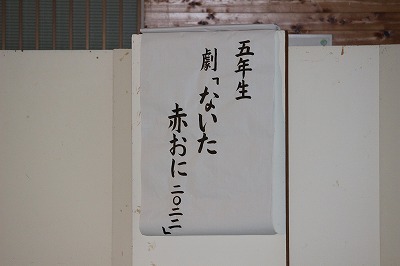 五年生
劇「ないた
赤おに二〇二二」